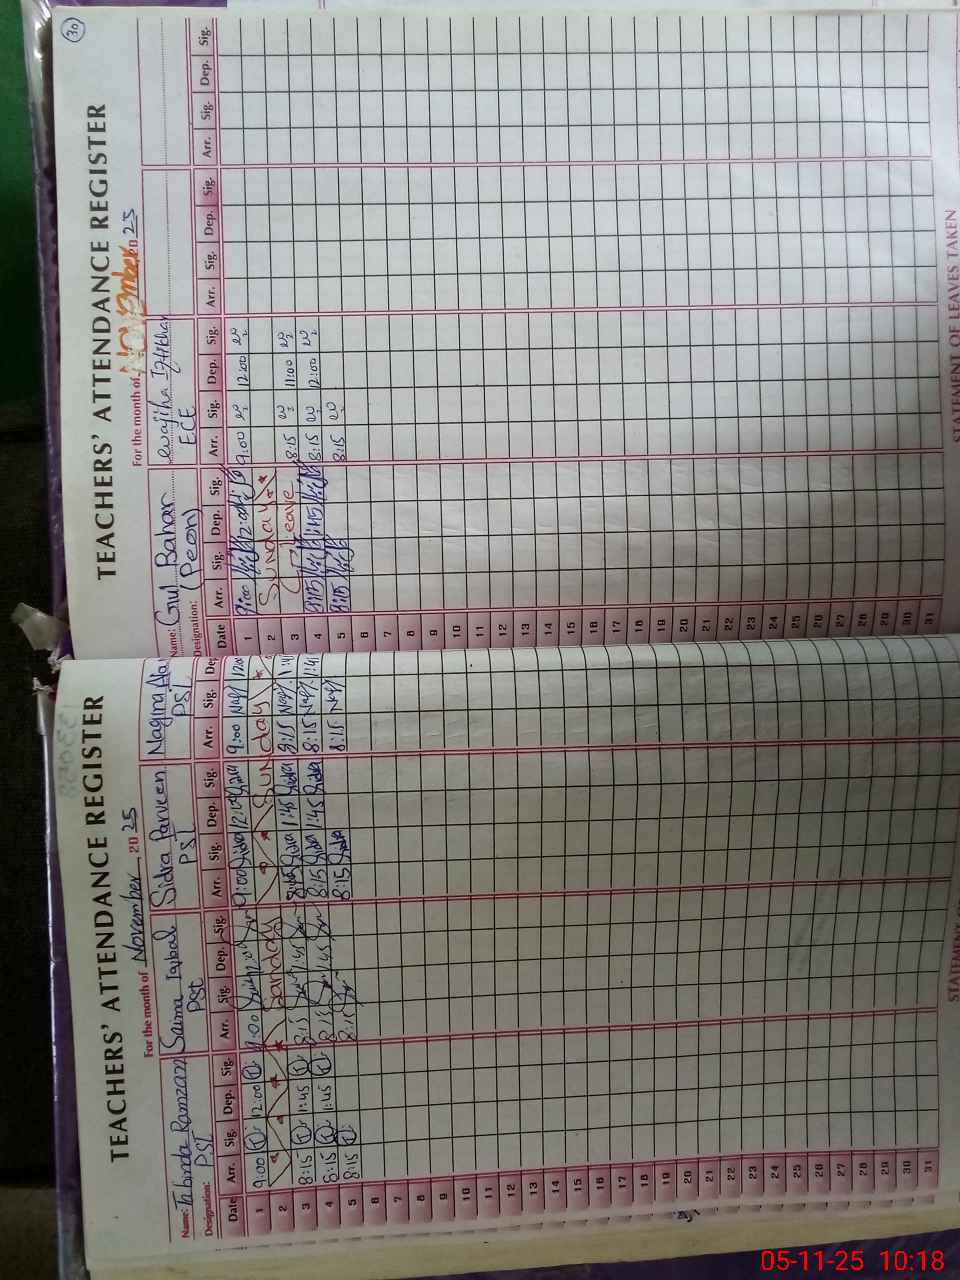 TEACHERS' ATTENDANCE REGISTER
For the month of November 20 25
Name: Tabinda Ramzan Saima Iqbal Sidra Parveen Nagina
Designation: PST PSt PST PST
Date Arr. Sig. Dep. Sig. Arr. Sig. Dep. Sig. Arr. Sig. Dep. Sig. Arr. Sig. De
1 9:00 T 12:00 T 9:00 12:00 9:00 Sidra 12:00 Sidra 9:00 Naz 12:0
2 Sunday Sunday
3 8:15 T 1:45 T 8:15 1:45 8:15 Sidra 1:45 Sidra 8:15 Naz 1:4
4 8:15 T 1:45 T 8:15 1:45 8:15 Sidra 1:45 Sidra 8:15 Naz 1:4
5 8:15 T 8:15 8:15 Sidra 8:15 Naz
6
7
8
9
10
11
12
13
14
15
16
17
18
19
20
21
22
23
24
25
26
27
28
29
30
31
STATEMENT O
30
TEACHERS' ATTENDANCE REGISTER
For the month of November 20 25
Name: Gul Bahar Wajiha Iftikhar
Designation: (Peon) E.C.E
Date Arr. Sig. Dep. Sig. Arr. Sig. Dep. Sig. Arr. Sig. Dep. Sig. Arr. Sig. Dep. Sig.
1 9:00 12:00 9:00 12:00
2 Sunday
3 C Leave 8:15 11:00
4 8:15 1:45 8:15 12:00
5 8:15 8:15
6
7
8
9
10
11
12
13
14
15
16
17
18
19
20
21
22
23
24
25
26
27
28
29
30
31
STATEMENT OF LEAVES TAKEN
05-11-25 10:18